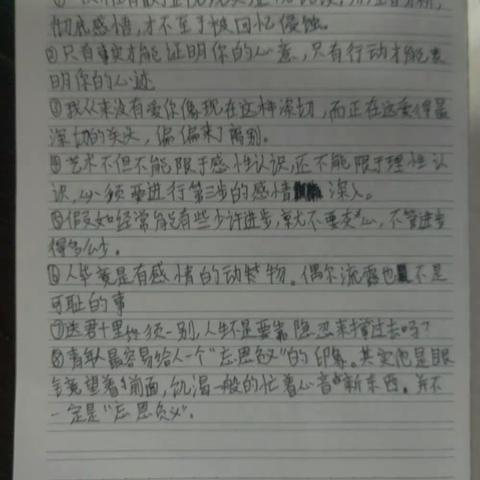 彻底感悟，才不至于被回忆侵蚀。
②只有事实才能证明你的心意，只有行动才能表
明你的心迹
③我从来没有爱你像现在这种深切，而正在这爱得最
深切的关头，偏偏来了离别。
④艺术不但不能限于感性认识，还不能限于理性认
识，必须要进行第三步的感情深入。
⑤假如经常能有些少许进步，就不要灰心，不管进步
得多么少。
⑥人毕竟是有感情的动物。偶尔流露也不是
可耻的事
⑦送君十里终须一别，人生不是要靠隐忍来撑过去吗？
⑧青年人最容易给人一个“忘恩负义”的印象。其实他是眼
睛望着前面，饥渴一般的忙着心音新东西。并不
一定是“忘恩负义”。